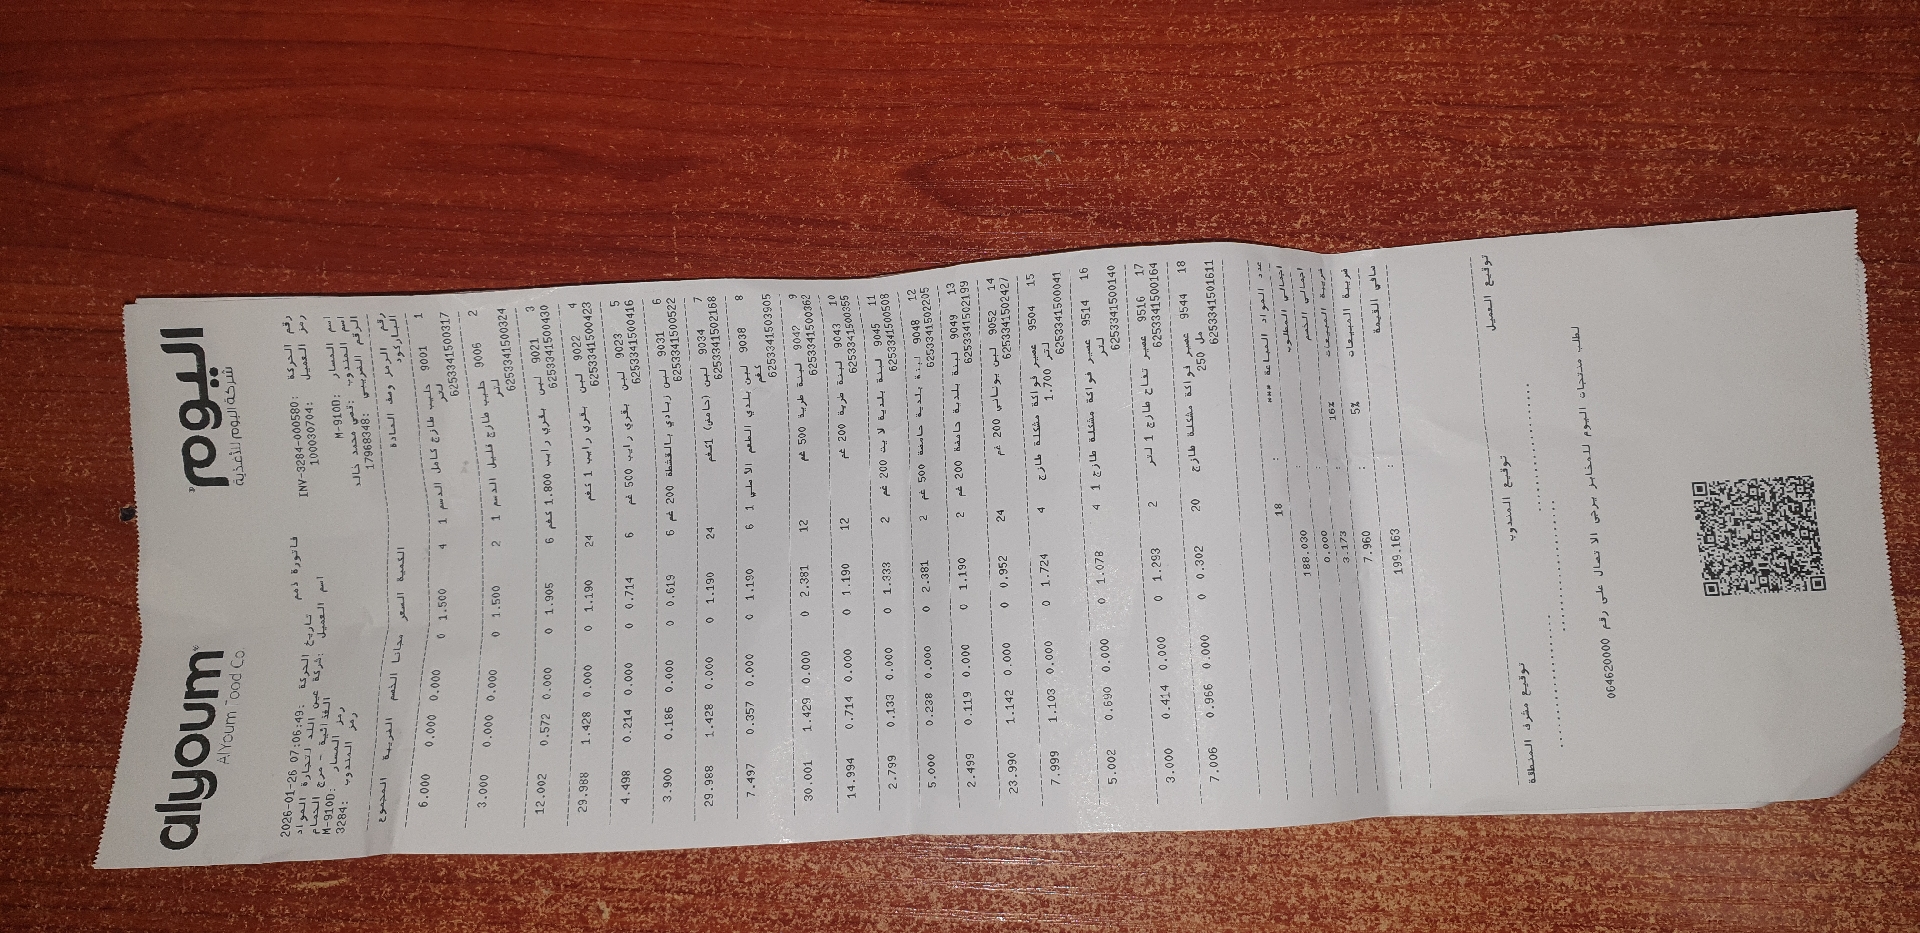 اليوم alyoum
شركة اليوم للأغذية AlYoum Food Co.
رقم الحركة: INV-3284-000580 فاتورة ذمم تاريخ الحركة: 2026-01-26 07:06:49
رمز العميل: 100030704 اسم العميل: شركة عبي البلد لتجارة المواد
الغذائية - مرج الحمام
اسم المسار: M-910D رمز المسار: M-910D
اسم المندوب: قصي محمد خالد رمز المندوب: 3284
الرقم الضريبي: 17968348
رقم الرمز وصف المادة الكمية السعر مجانا الخصم الضريبة المجموع
الباركود
1 9001 حليب طازج كامل الدسم 1 4 1.500 0 0.000 0.000 6.000
لتر
6253341500317
2 9006 حليب طازج قليل الدسم 1 2 1.500 0 0.000 0.000 3.000
لتر
6253341500324
3 9021 لبن بقري رايب 1.800 كغم 6 1.905 0 0.000 0.572 12.002
6253341500430
4 9022 لبن بقري رايب 1 كغم 24 1.190 0 0.000 1.428 29.988
6253341500423
5 9023 لبن بقري رايب 500 غم 6 0.714 0 0.000 0.214 4.498
6253341500416
6 9031 لبن زبادي بالقشطة 200 غم 6 0.619 0 0.000 0.186 3.900
6253341500522
7 9034 لبن (حامض) 1كغم 24 1.190 0 0.000 1.428 29.988
6253341502168
8 9038 لبن بلدي الطعم الاصلي 1 6 1.190 0 0.000 0.357 7.497
كغم
6253341503905
9 9042 لبنة طرية 500 غم 12 2.381 0 0.000 1.429 30.001
6253341500362
10 9043 لبنة طرية 200 غم 12 1.190 0 0.000 0.714 14.994
6253341500355
11 9045 لبنة بلدية لايت 200 غم 2 1.333 0 0.000 0.133 2.799
6253341500508
12 9048 لبنة بلدية حامضة 500 غم 2 2.381 0 0.000 0.238 5.000
6253341502205
13 9049 لبنة بلدية حامضة 200 غم 2 1.190 0 0.000 0.119 2.499
6253341502199
14 9052 لبن يوناني 200 غم 24 0.952 0 0.000 1.142 23.990
6253341502427
15 9504 عصير فواكة مشكلة طازج 4 1.724 0 0.000 1.103 7.999
1.700 لتر
6253341500041
16 9514 عصير فواكة مشكلة طازج 1 4 1.078 0 0.000 0.690 5.002
لتر
6253341500140
17 9516 عصير تفاح طازج 1 لتر 2 1.293 0 0.000 0.414 3.000
6253341500164
18 9544 عصير فواكة مشكلة طازج 20 0.302 0 0.000 0.966 7.006
250 مل
6253341501611
عدد المواد المباعة *** : 18
اجمالي المطلوب : 188.030
اجمالي الخصم : 0.000
ضريبة المبيعات 16% : 3.173
ضريبة المبيعات 5% : 7.960
صافي القيمة : 199.163
توقيع العميل توقيع المندوب توقيع مشرف المنطقة
لطلب منتجات اليوم للمخابز يرجى الاتصال على رقم 064620000